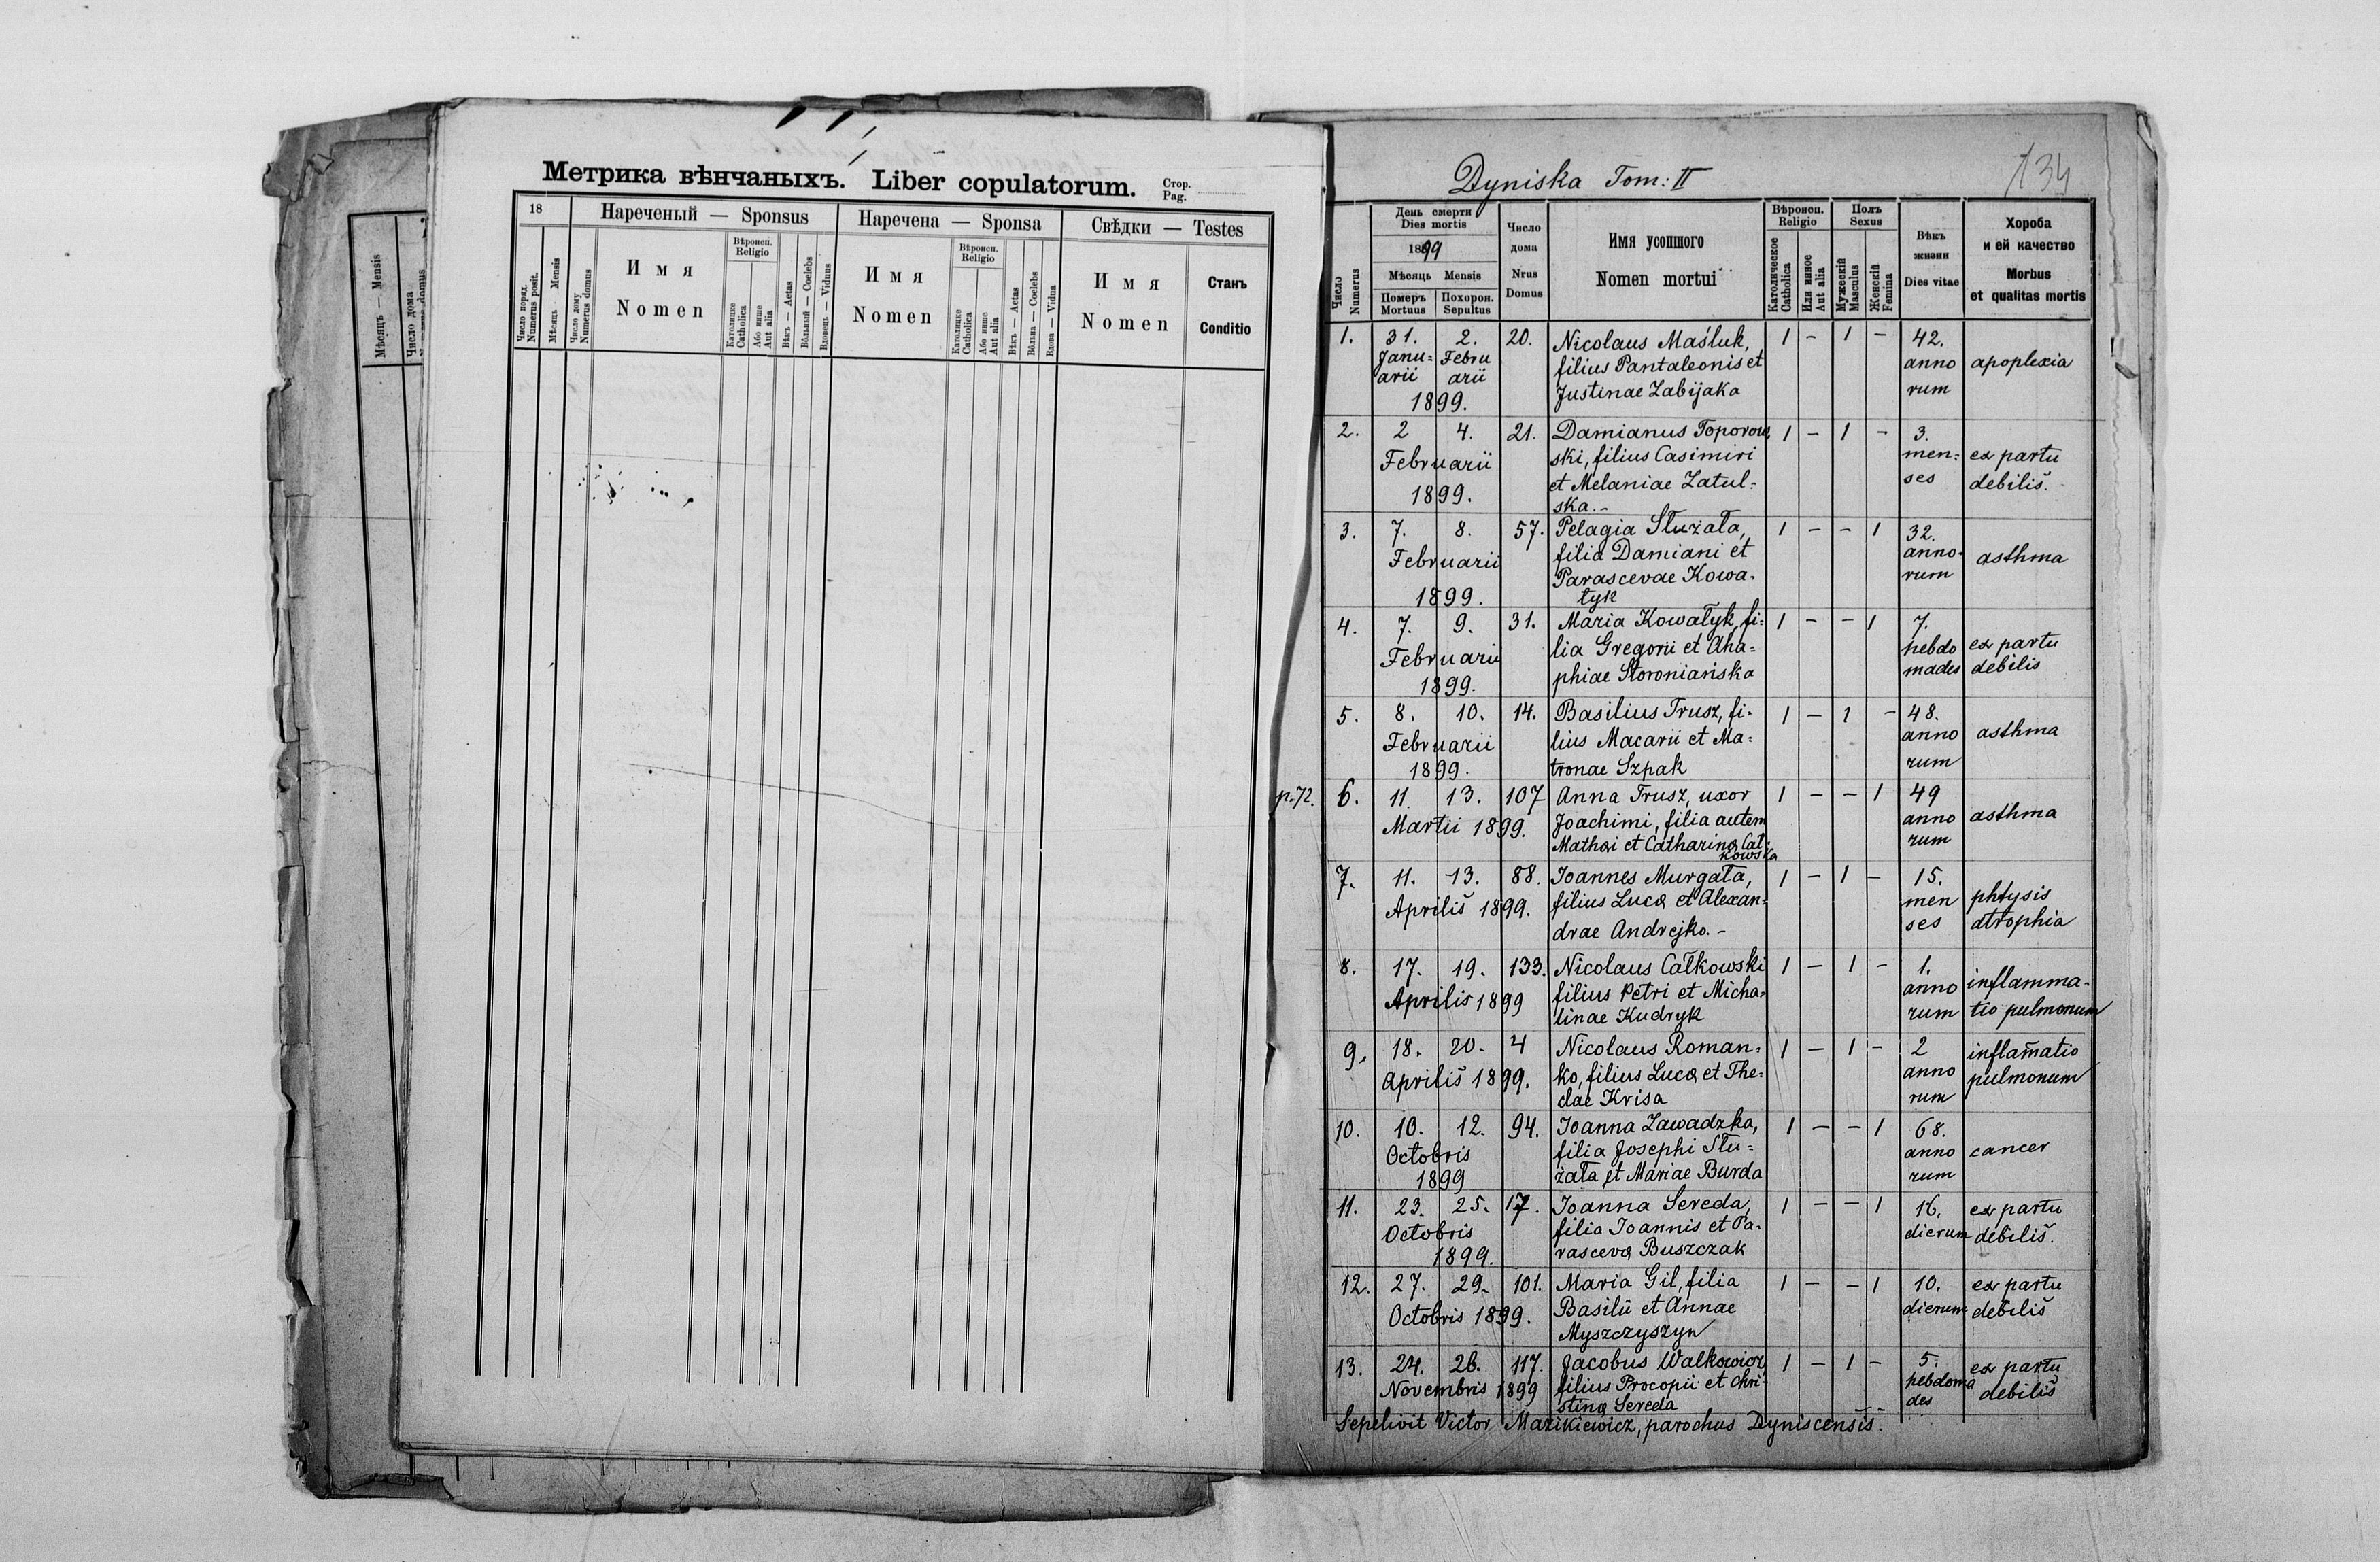 Метрика вѣнчаныхъ. Liber copulatorum. Стор. Pag.
18
Нареченый — Sponsus
Наречена — Sponsa
Свѣдки — Testes
Число поряд. Numerus posit.
Мѣсяць Mensis
Число дому Numerus domus
Имя
Nomen
Вѣроисп. Religio
Католицке Catholica
Або инше Aut alia
Вѣкъ — Aetas
Вôльный — Coelebs
Вдовець — Viduus
Имя
Nomen
Вѣроисп. Religio
Католицке Catholica
Або инше Aut alia
Вѣкъ — Aetas
Вôльна — Coelebs
Вдова — Vidua
Имя
Nomen
Станъ
Conditio
Мѣсяцъ — Mensis
Число дома
Dyniska Tom: II
134
Число Numerus
День смерти
Dies mortis
1899
Мѣсяць Mensis
Померъ Mortuus
Похорон. Sepultus
Число
дома
Nrus
Domus
Имя усопшого
Nomen mortui
Вѣроисп.
Religio
Католическое Catholica
Или инное Aut alia
Полъ
Sexus
Мужескій Masculus
Женскій Femina
Вѣкъ
жизни
Dies vitae
Хороба
и ей качество
Morbus
et qualitas mortis
1. 31. 2. 20. Nicolaus Maśluk, 1 - 1 - 42.
Janu= Febru filius Pantaleonis et anno apoplexia
arii arii Justinae Zabijaka rum
1899.
2. 2 4. 21. Damianus Toporow, 1 - 1 - 3.
Februarii ski, filius Casimiri men= ex partu
1899. et Melaniae Zatul= ses debilis.
ska.-
3. 7. 8. 57. Pelagia Służała, 1 - - 1 32.
Februarii filia Damiani et anno- asthma
Parascevae Kowa- rum
1899. łyk
4. 7. 9. 31. Maria Kowałyk, fi= 1 - - 1 7.
Februarii lia Gregorii et Aha= hebdo ex partu
1899. phiae Storoniańska mades debilis
5. 8. 10. 14. Basilius Trusz, fi- 1 - 1 - 48.
Februarii lius Macarii et Ma= anno asthma
1899. tronae Szpak rum
p.72. 6. 11. 13. 107 Anna Trusz, uxor 1 - - 1 49
Martii 1899. Joachimi, filia autem anno asthma
Mathæi et Catharinæ Cał- rum
kowska
7. 11. 13. 88. Ioannes Murgała, 1 - 1 - 15.
Aprilis 1899. filius Lucæ et Alexan- men phtysis
drae Andrejko.- ses atrophia
8. 17. 19. 133. Nicolaus Całkowski 1 - 1 - 1.
Aprilis 1899 filius Petri et Micha- anno inflamma-
linae Kudryk rum tio pulmonum
9. 18. 20. 4 Nicolaus Roman= 1 - 1 - 2 inflam̄atio
Aprilis 1899. ko, filius Lucæ et The= anno pulmonum
clae Krisa rum
10. 10. 12. 94. Ioanna Zawadzka, 1 - - 1 68.
Octobris filia Josephi Słu= anno cancer
1899 żała et Mariae Burda rum
11. 23. 25. 17. Ioanna Sereda, 1 - - 1 16. ex partu
Octobris filia Ioannis et Pa- dierum debilis.
1899. rascevæ Buszczak
12. 27. 29. 101. Maria Gil, filia 1 - - 1 10. ex partu
Octobris 1899. Basilii et Annae dierum debilis
Myszczyszyn
13. 24. 26. 117. Jacobus Walkowicz 1 - 1 - 5. ex partu
Novembris 1899 filius Procopii et Chri- hebdoma debilis
stinæ Sereda des
Sepelivit Victor Mazikiewicz, parochus Dyniscensis.